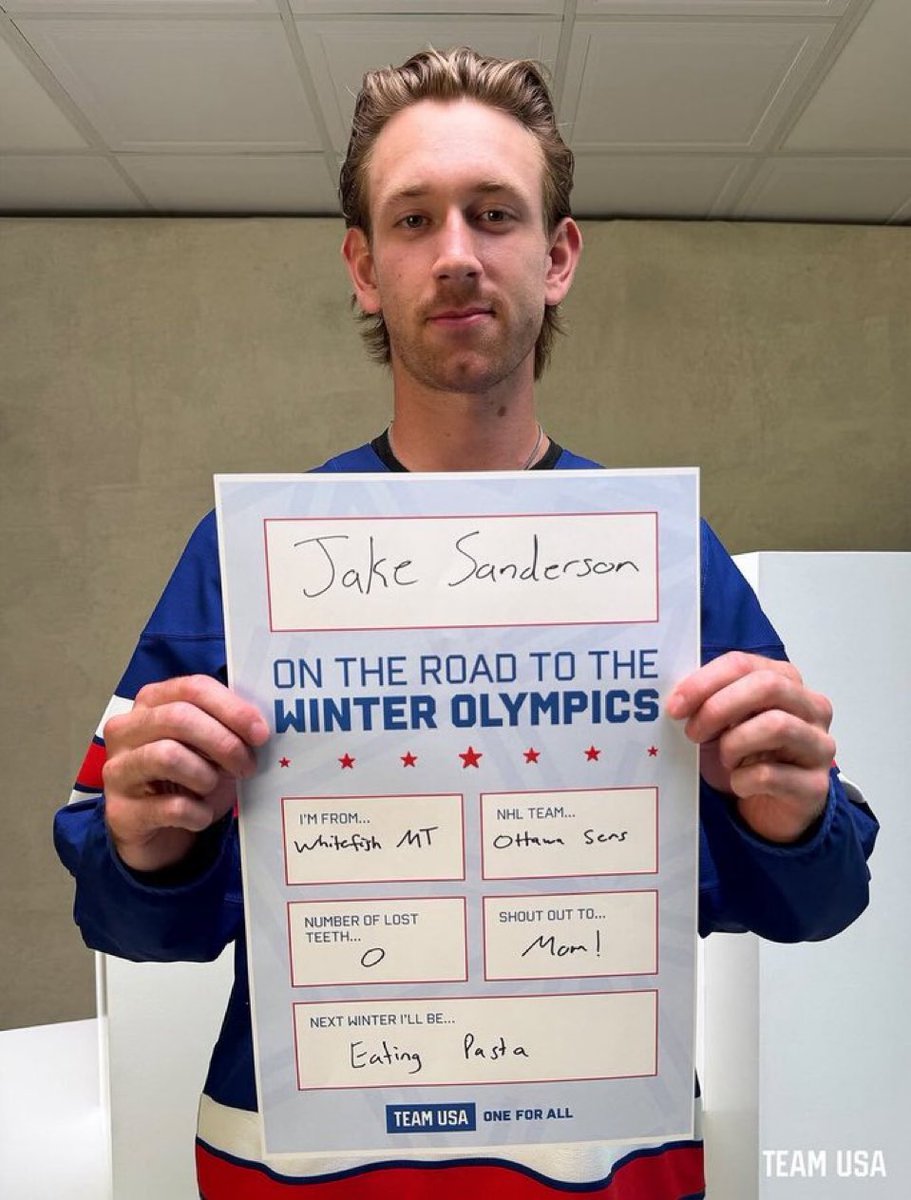 Jake Sanderson
ON THE ROAD TO THE
WINTER OLYMPICS
I'M FROM...
Whitefish MT
NHL TEAM...
Ottawa Sens
NUMBER OF LOST
TEETH...
0
SHOUT OUT TO...
Mom!
NEXT WINTER I'LL BE...
Eating Pasta
TEAM USA ONE FOR ALL
TEAM USA